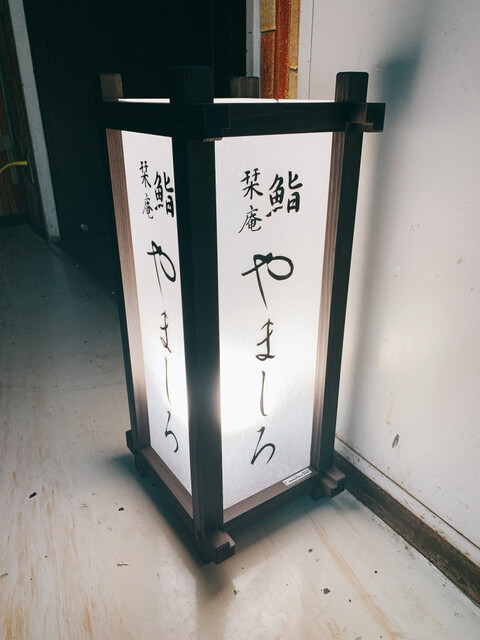 鮨
栞庵
やましろ
鮨
栞庵
やましろ